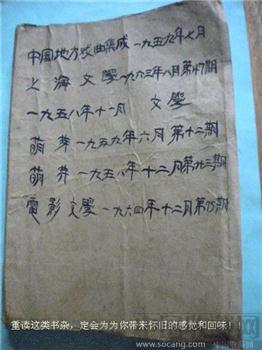 中国地方戏曲集成一九五九年七月
上海文学一九六三年八月第47期
一九五八年十一月 文学
萌芽一九五九年六月第十二期
萌芽一九五八年十二月第九三期
電影文學一九六四年十二月第75期
重读这类书杂，定会为为你带来怀旧的感觉和回味！！
www.socang.com